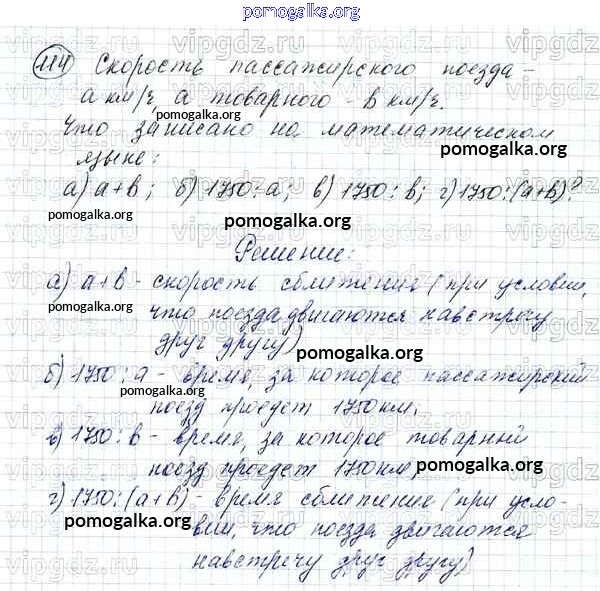 pomogalka.org
114 Скорость пассажирского поезда -
a км/ч, а товарного - b км/ч.
pomogalka.org
Что записано на математическом
языке:
pomogalka.org
а) a+b; б) 1750:a; в) 1750:b; г) 1750:(a+b)?
pomogalka.org pomogalka.org
Решение:
а) a+b - скорость сближения (при условии,
pomogalka.org
что поезда двигаются навстречу
друг другу)
pomogalka.org
б) 1750:a - время, за которое пассажирский
pomogalka.org
поезд проедет 1750км;
в) 1750:b - время, за которое товарный
поезд проедет 1750км;
pomogalka.org
г) 1750:(a+b) - время сближение (при усло-
pomogalka.org
вии, что поезда двигаются
навстречу друг другу)
pomogalka.org